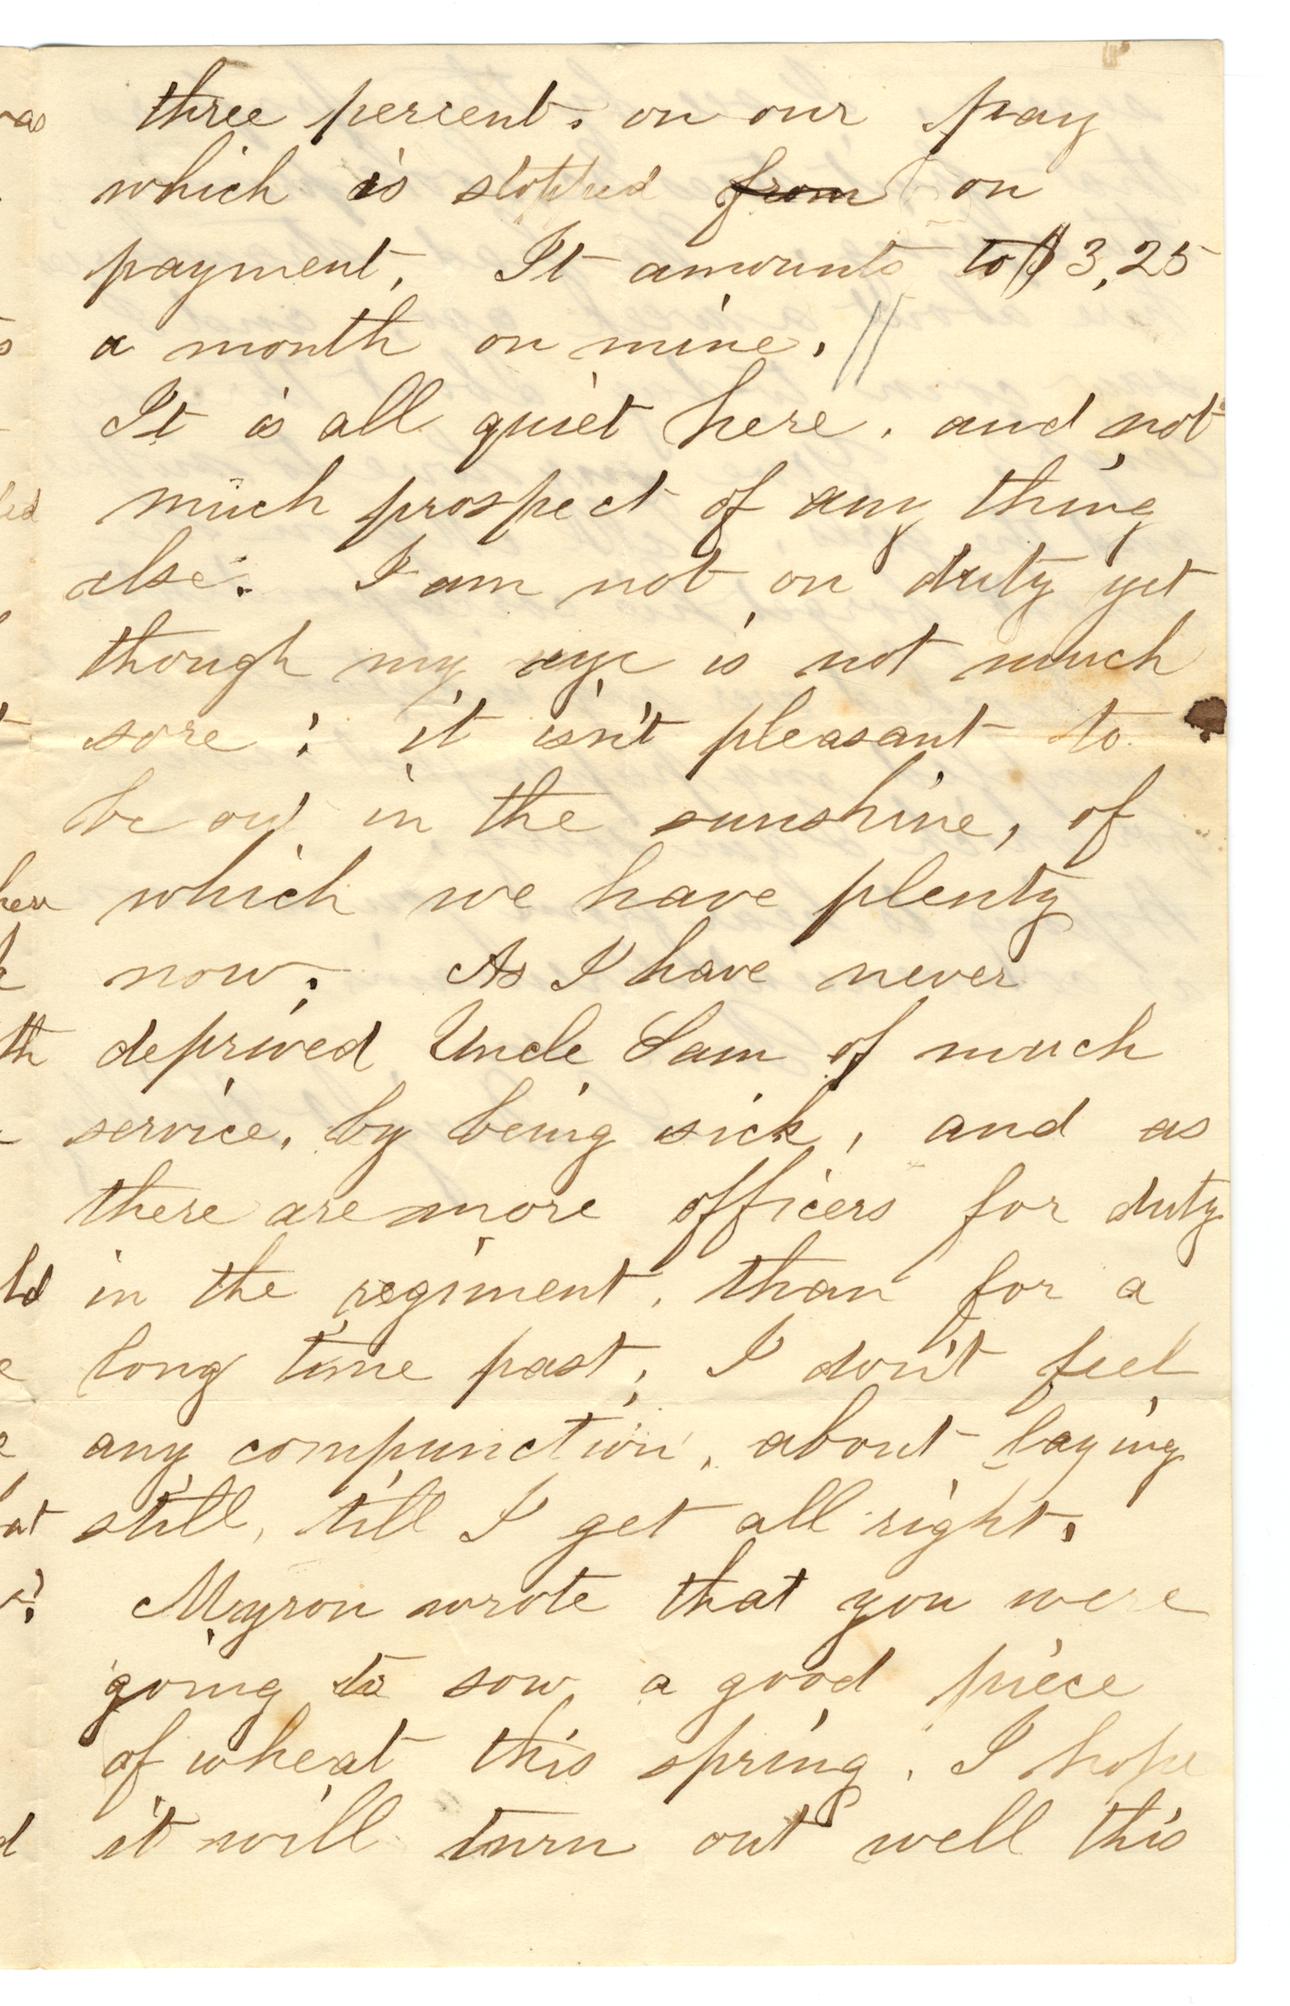 three percent. on our pay
which is stopped from on
payment. It amounts to $3,25
a month on mine. //
It is all quiet here. and not
much prospect of any thing
else. I am not on duty yet
though my eye is not much
sore; it isn't pleasant to
be out in the sunshine, of
which we have plenty
now. As I have never
deprived Uncle Sam of much
service, by being sick, and as
there are more officers for duty
in the regiment, than for a
long time past; I don't feel
any compunction, about laying
still, till I get all right.
Myron wrote that you were
going to sow a good piece
of wheat this spring. I hope
it will turn out well this